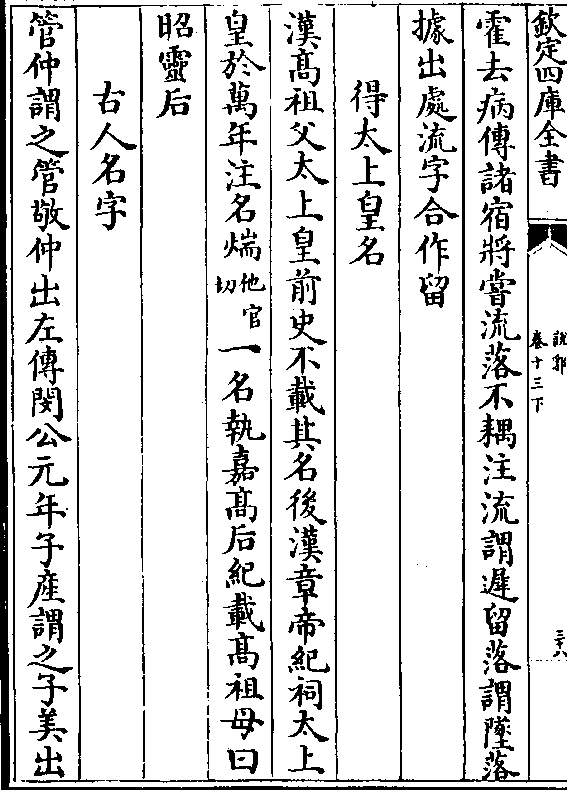 欽定四庫全書
說郛
卷十三下
三十八
霍去病傳諸宿將嘗流落不耦注流謂遲留落謂墜落
據出處流字合作留
得太上皇名
漢高祖父太上皇前史不載其名後漢章帝紀祠太上
皇於萬年注名煓他官切一名執嘉高后紀載高祖母曰
昭靈后
古人名字
管仲謂之管敬仲出左傳閔公元年子產謂之子美出